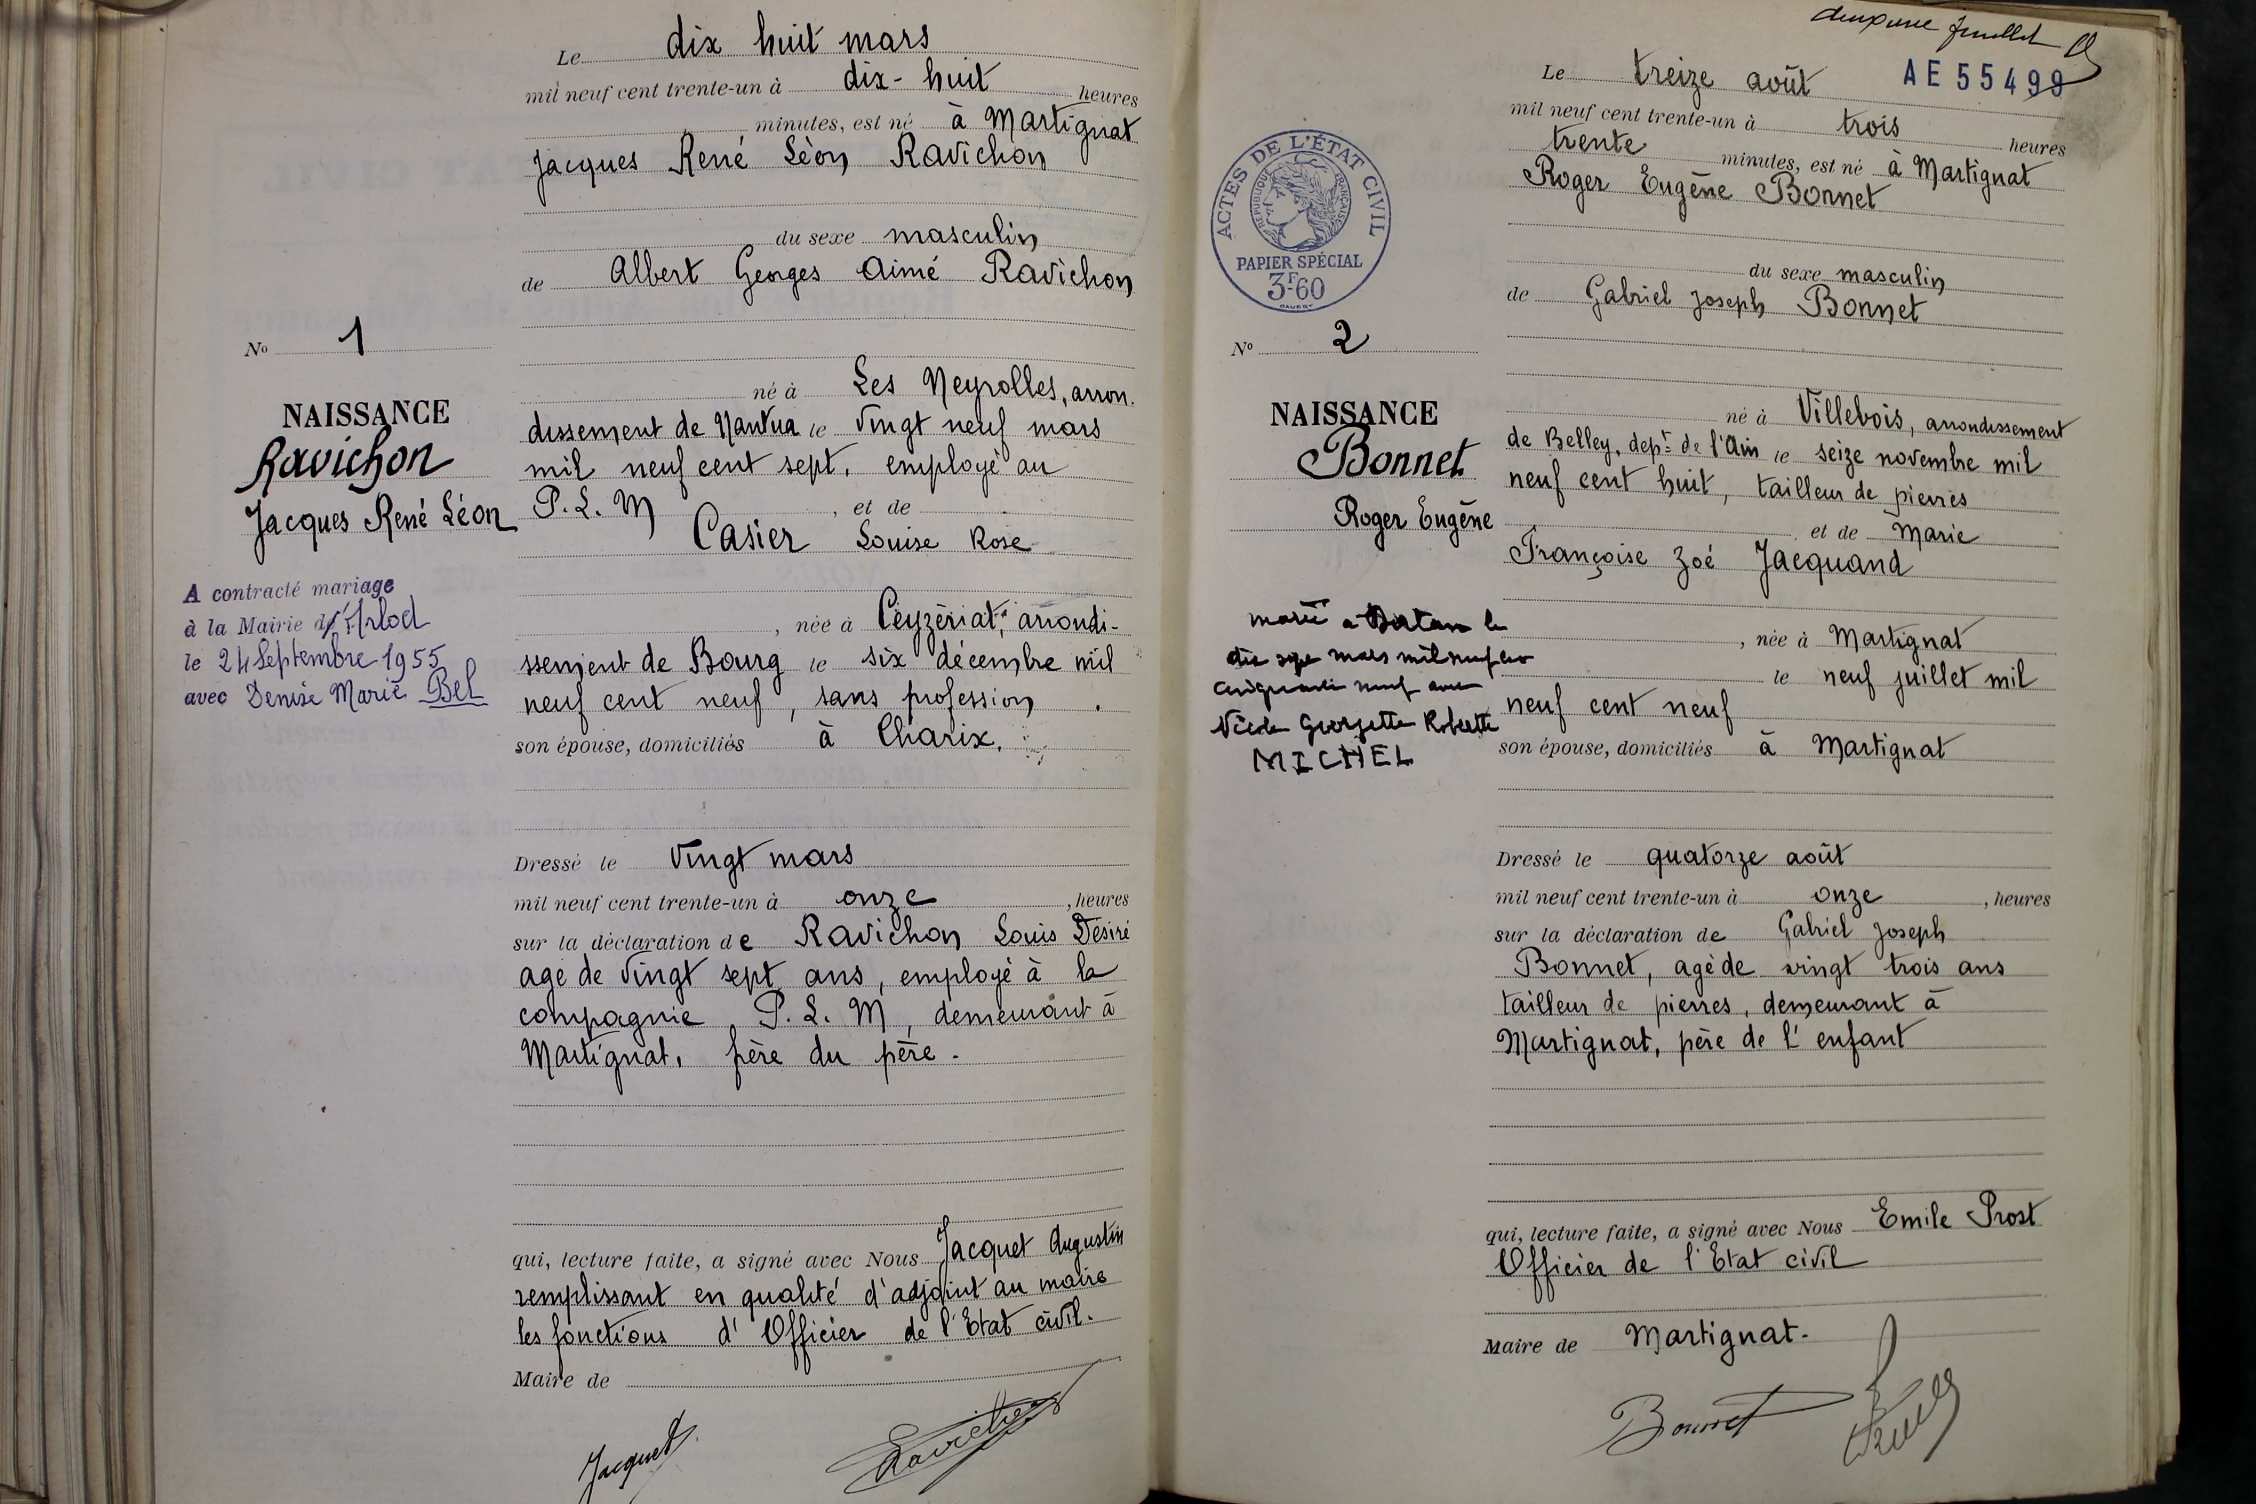 Le dix huit mars
mil neuf cent trente-un à dix-huit heures
minutes, est né à Martignat
Jacques René Léon Ravichon
du sexe masculin
de Albert Georges Aimé Ravichon
No 1
né à Les Neyrolles, arron.
dissement de Nantua le vingt neuf mars
mil neuf cent sept, employé au
P. L. M et de
Casier Louise Rose
NAISSANCE
Ravichon
Jacques René Léon
A contracté mariage
à la Mairie d'Arlod
le 24 Septembre 1955
avec Denise Marie Bel
, née à Ceyzériat, arrondi-
ssement de Bourg le six décembre mil
neuf cent neuf, sans profession
son épouse, domiciliés à Charix.
Dressé le vingt mars
mil neuf cent trente-un à onze , heures
sur la déclaration de Ravichon Louis Désiré
agé de vingt sept ans, employé à la
compagnie P. L. M, demeurant à
Martignat, frère du père.
qui, lecture faite, a signé avec Nous Jacquet Augustin
remplissant en qualité d'adjoint au maire
les fonctions d'Officier de l'Etat civil.
Maire de
Jacquet
Ravichon
feuillet
AE 55499
Le treize août
mil neuf cent trente-un à trois heures
trente minutes, est né à Martignat
Roger Eugène Bonnet
du sexe masculin
de Gabriel Joseph Bonnet
ACTES DE L'ÉTAT CIVIL
RÉPUBLIQUE FRANÇAISE
PAPIER SPÉCIAL
3F60
No 2
né à Villebois, arrondissement
de Belley, dept de l'Ain le seize novembre mil
neuf cent huit, tailleur de pierres
et de Marie
Françoise Zoé Jacquand
NAISSANCE
Bonnet
Roger Eugène
marié a le
mars mil neuf cent
cinquante neuf avec
Nicole Georgette Roberte
MICHEL
, née à Martignat
le neuf juillet mil
neuf cent neuf
son épouse, domiciliés à Martignat
Dressé le quatorze août
mil neuf cent trente-un à onze , heures
sur la déclaration de Gabriel Joseph
Bonnet, agé de vingt trois ans
tailleur de pierres, demeurant à
Martignat, père de l'enfant
qui, lecture faite, a signé avec Nous Emile Prost
Officier de l'Etat civil
Maire de Martignat.
Bonnet